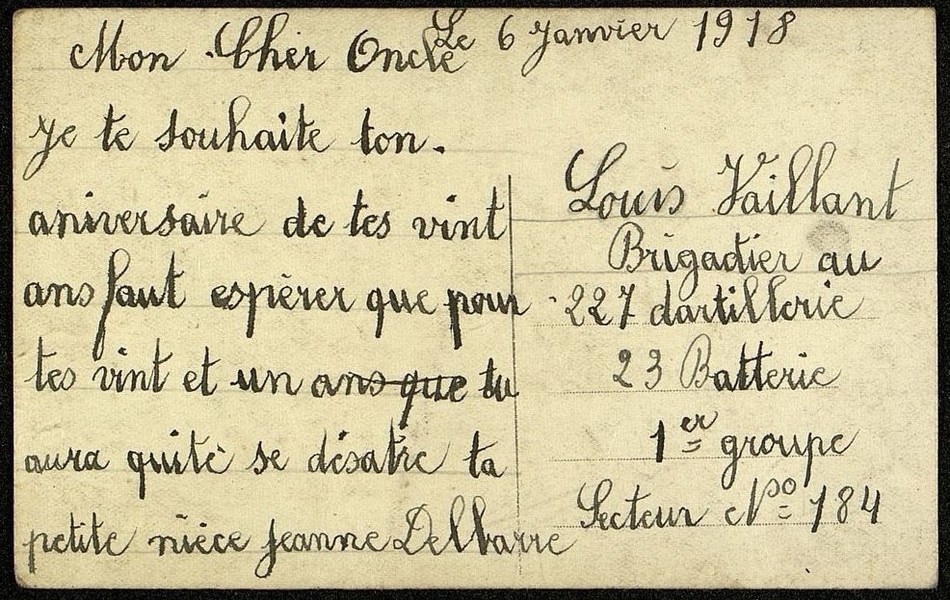 Le 6 Janvier 1918
Mon Cher Oncle
Je te souhaite ton.
aniversaire de tes vint
ans faut espérer que pour
tes vint et un ans que tu
aura quité se désatre ta
petite nièce Jeanne Delbarre
Louis Vaillant
Brigadier au
227 dartillerie
23 Batterie
1er groupe
Secteur No 184